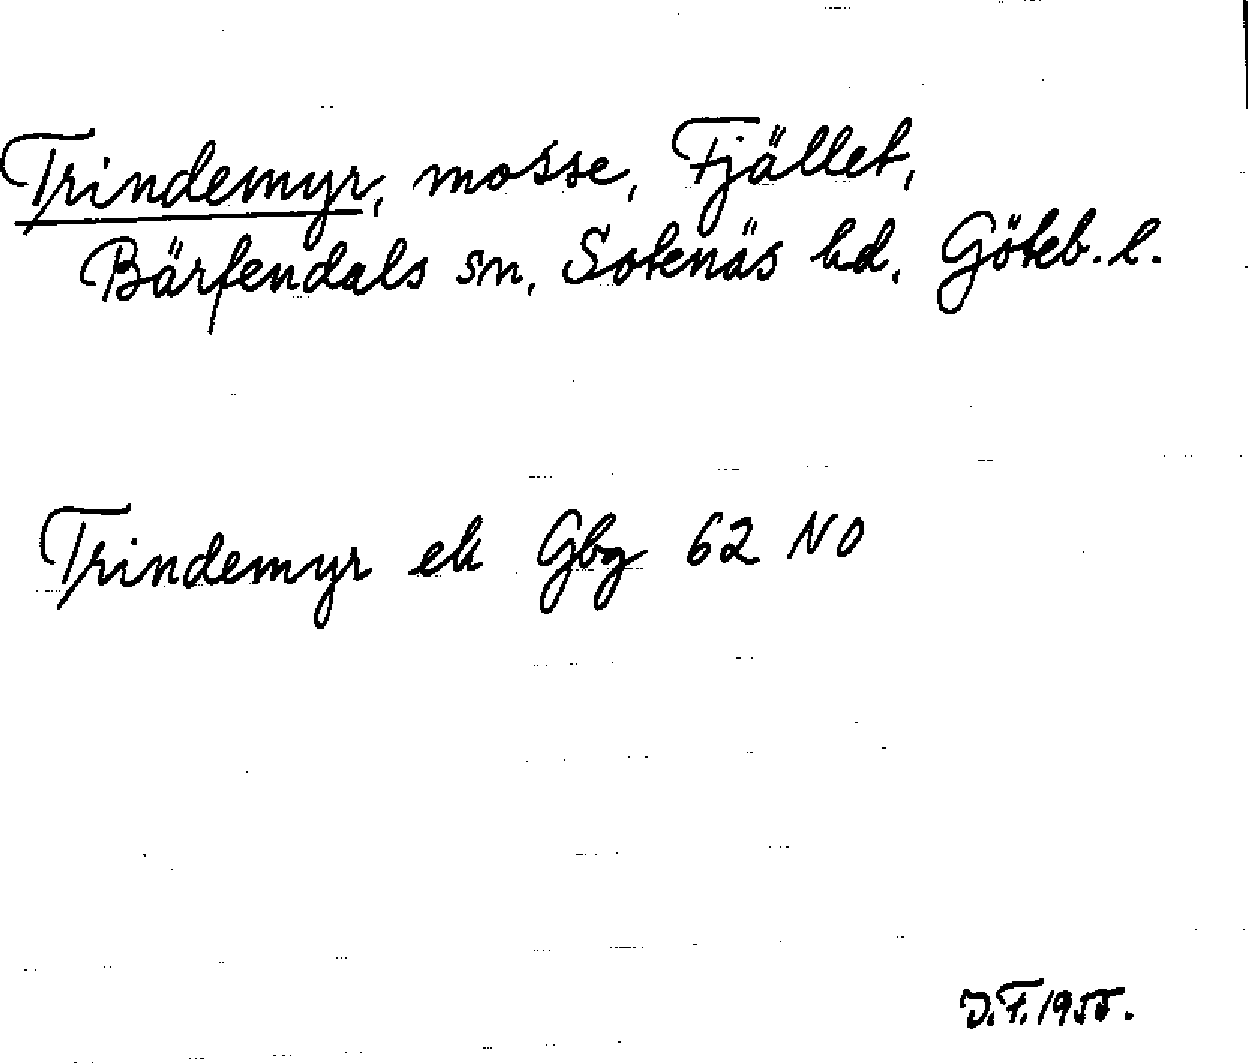 Trindemyr, mosse, Fjället,
Bärfendals sn, Sotenäs hd, Göteb. l.
Trindemyr ek Gbg 62 NO
J.F. 1955.